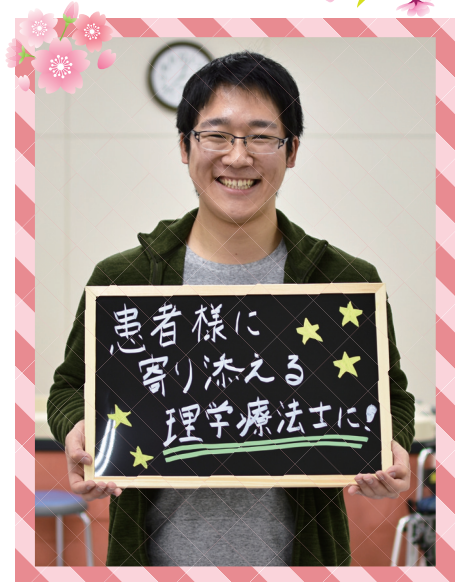 患者様に
寄り添える
理学療法士に!